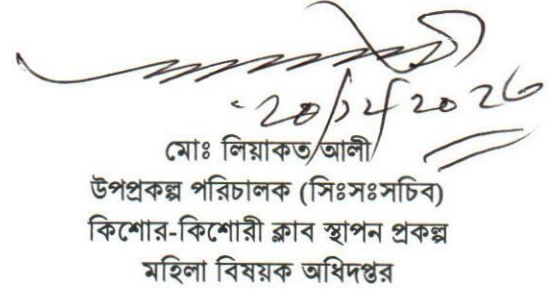 মোঃ লিয়াকত আলী
উপপ্রকল্প পরিচালক (সিঃসঃসচিব)
কিশোর-কিশোরী ক্লাব স্থাপন প্রকল্প
মহিলা বিষয়ক অধিদপ্তর